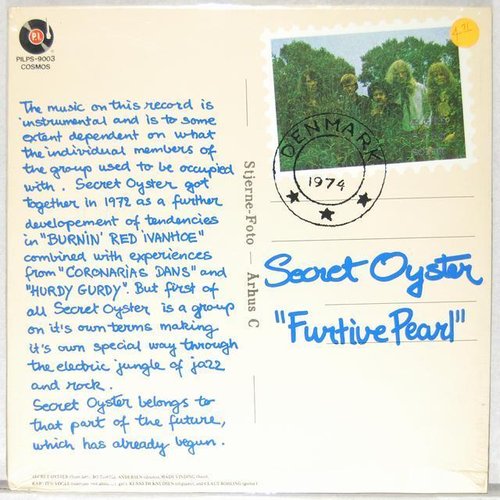 P.I.
PILPS-9003
COSMOS
The music on this record is
instrumental and is to some
extent dependent on what
the individual members of
the group used to be occupied
with. Secret Oyster got
together in 1972 as a further
developement of tendencies
in "BURNIN' RED IVANHOE"
combined with experiences
from "CORONARIAS DANS" and
"HURDY GURDY". But first of
all Secret Oyster is a group
on it's own terms making
it's own special way through
the electric jungle of jazz
and rock.
Secret Oyster belongs to
that part of the future,
which has already begun.
Stjerne-Foto — Århus C
DENMARK
1974
Secret Oyster
"Furtive Pearl"